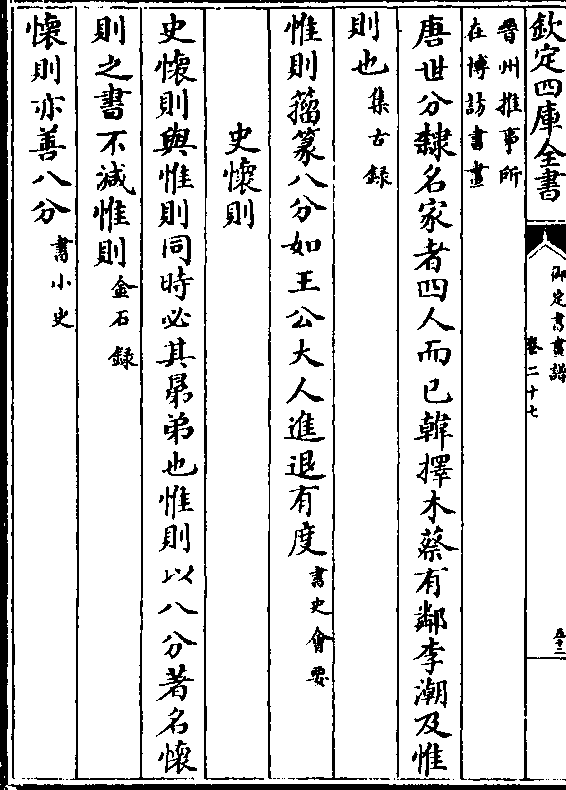 欽定四庫全書
御定書畫譜
卷二十七
五十二
晉州推事所
在博訪書畫
唐世分隸名家者四人而已韓擇木蔡有鄰李潮及惟
則也集古録
惟則籀篆八分如王公大人進退有度書史會要
史懷則
史懷則與惟則同時必其昴弟也惟則以八分著名懷
則之書不減惟則金石録
懷則亦善八分書小史